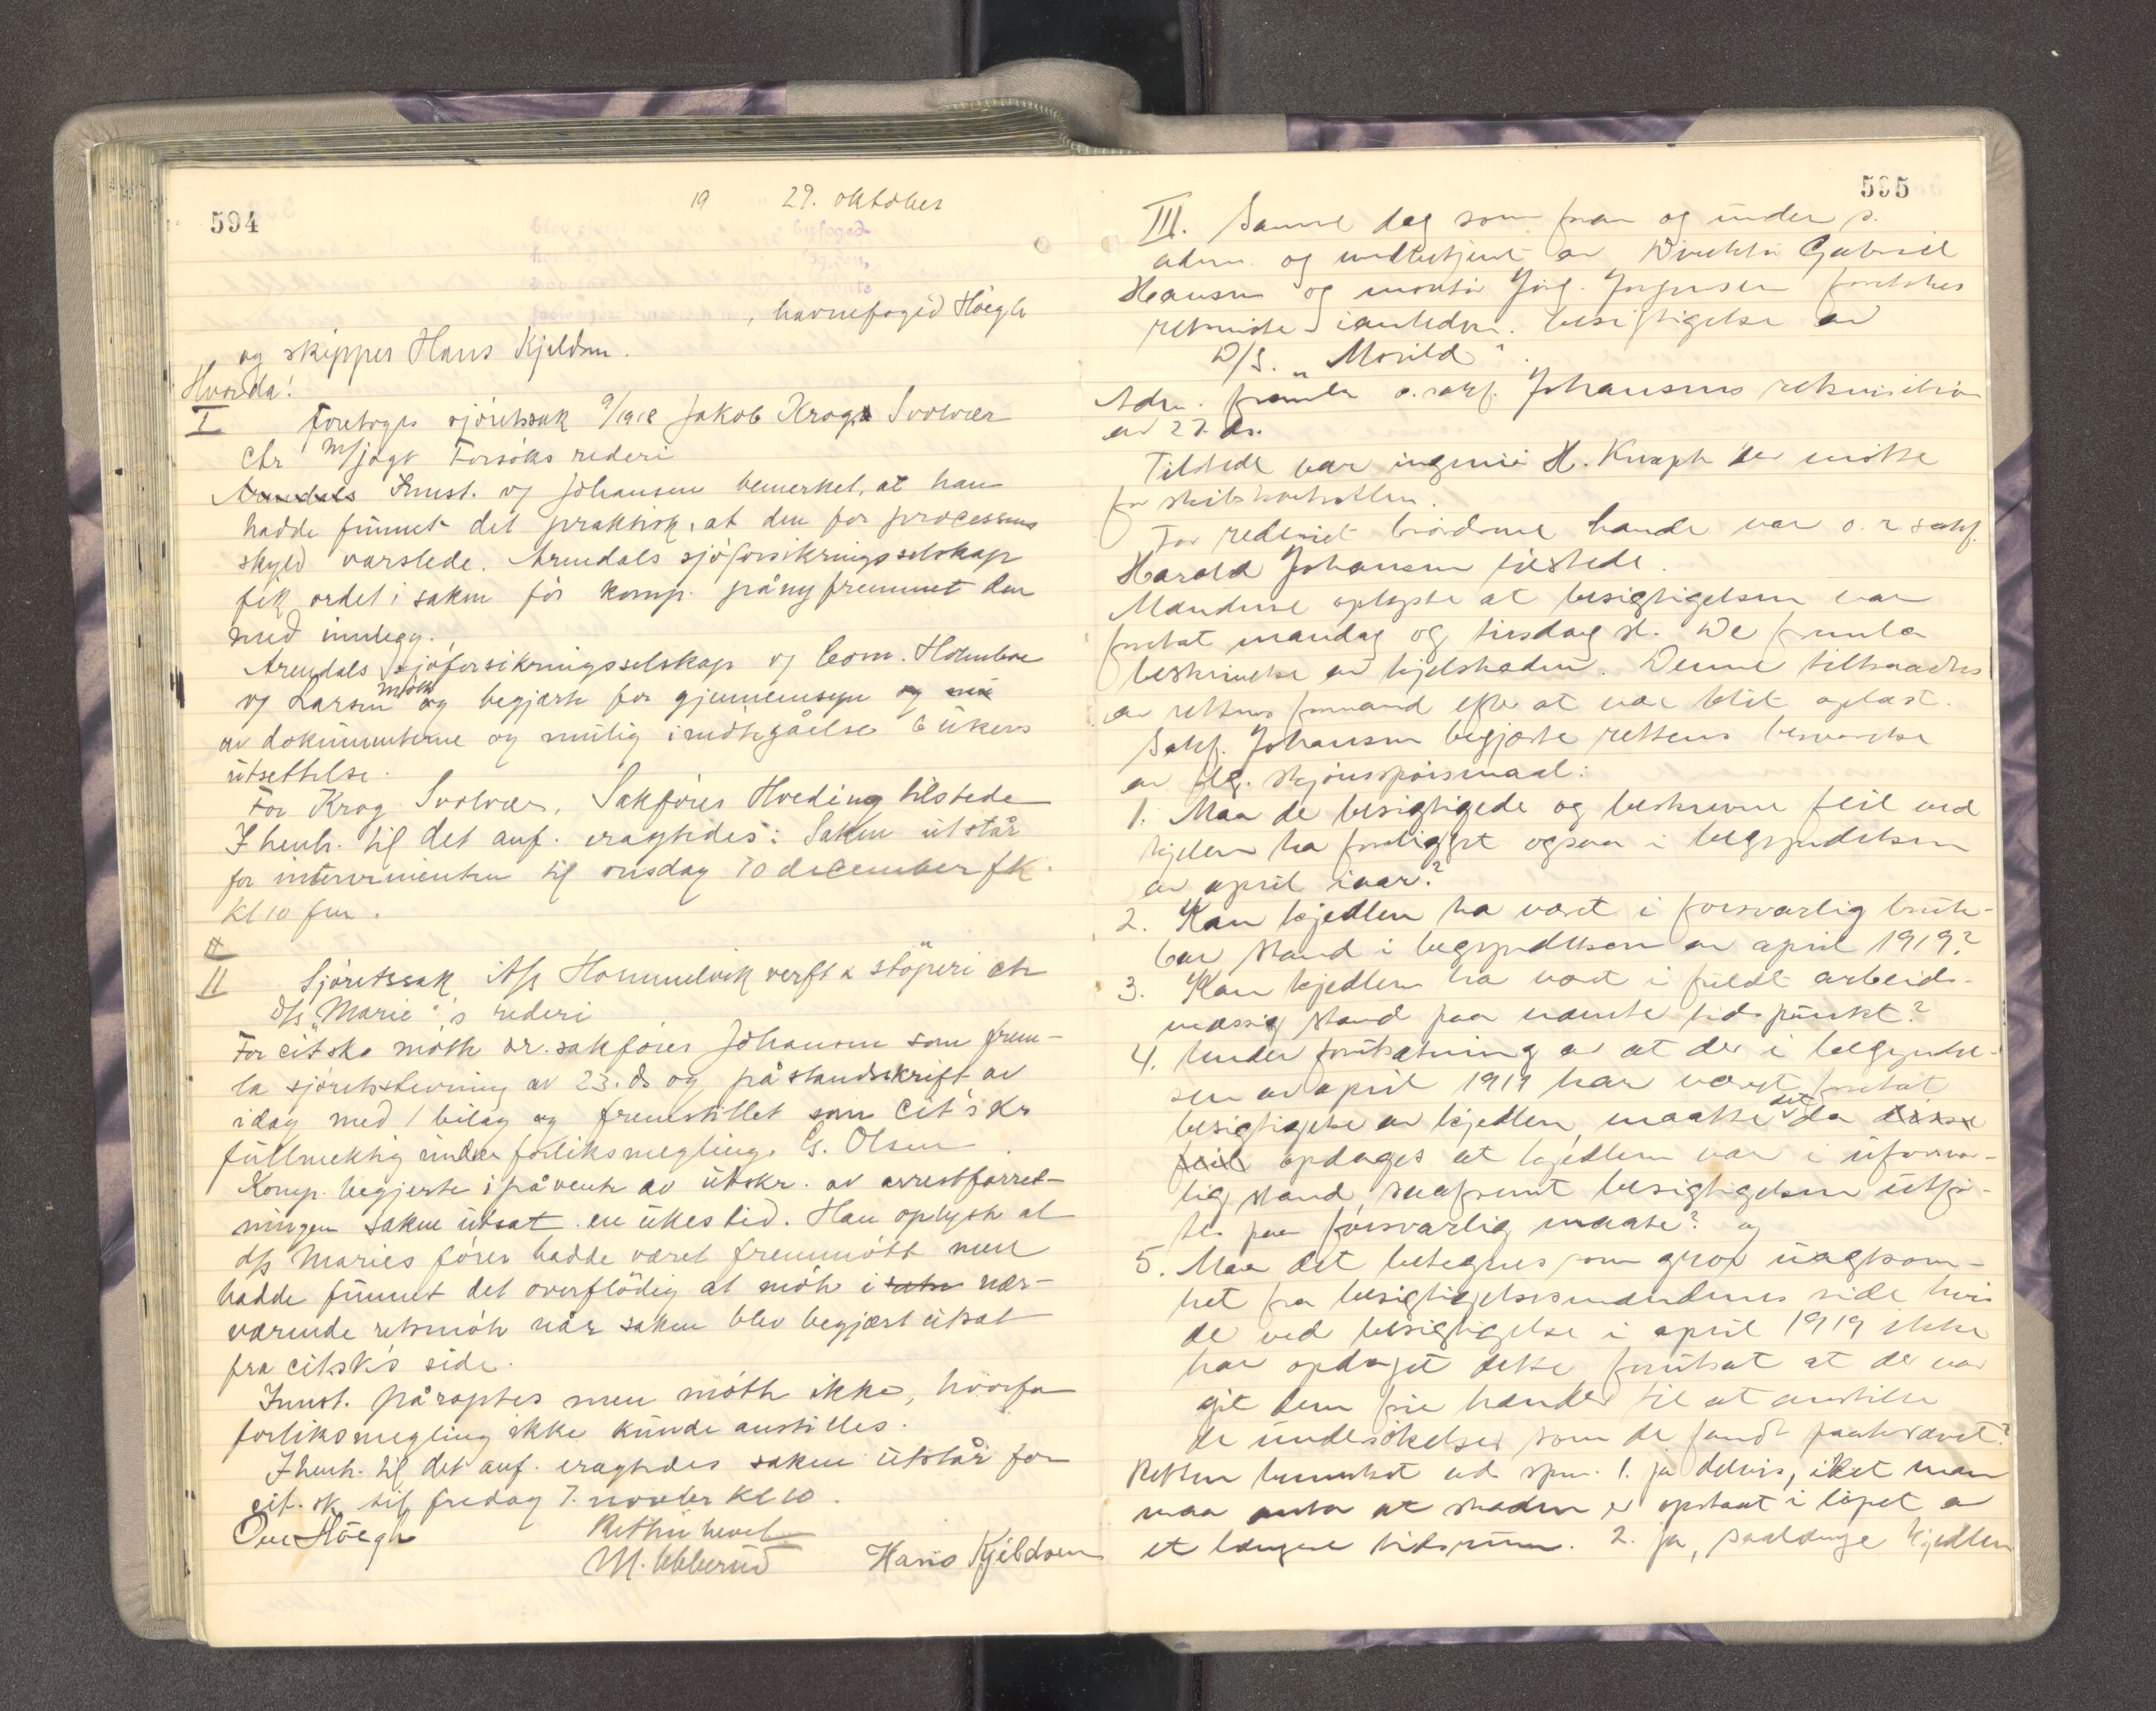 594
19 29. oktober
, havnefogid Höegh
og skipper Hans Kjeldsen.
Hvorda!
I foretoges sjöretssak 9/1918 Jakob Krogs Svolvær
ctr M/jagt Forsöks rederi
Arendals Innst. vf Johansen bemerket, at han
hadde funnet det praktisk, at den for processens
skyld varslede. Arendals sjöforsikringsselskap
fik ordet i saken för komp. påny fremmet den
med innlegg.
Arendals sjöforsikringsselskap vf Holmboe
vf Larsen mötte og begjærte for gjennemsyn og
av dokumenterne og mulig imötegåelse 6 ukers
utsettelse.
For Krog Svolvær, Sakförer Hveding tilstede
I henh. til det anf. eragtedes: Saken utstår
for intervenienten til onsdag 10 december fk.
Kl 10 fm.
II
II Sjöretssak A/s Hommelvik verft & stöperi ctr
D/s "Marie"s rederi
For citsk. mötte or. sakförer Johansen som frem-
la sjöretsstevning av 23. ds og påstandsskrift av
idag med 1 bilag og fremstillet som cit's kr
fullmektig under forliksmegling G. Olsen
Komp. begjerte i påvente av utskr. av arrestforret-
ningen saken utsat en ukes tid. Han oplyste at
d/s Maries förer hadde været fremmött men
hadde funnet det overflödig at möte i nær-
værende retsmöte når saken blev begjært utsat
fra citsk's side.
Innst. påroptes men mötte ikke, hvorfor
forliksmegling ikke kunde anstilles.
I henh. til det anf. eragtedes saken utstår for
cit. sk. til fredag 7. novbr kl 10.
Ove Höegh Retten hevet Hans Kjeldsen
M. Ubberud
595
III. Samme dag som foran og under s.
adm. og meddetjent av Direktör Gabriel
Hansen og montör Jörg. Jørgensen foretokes
retsmöte i anledn. besigtigelse av
D/S. "Morild".
Adm. fremla o.sakf. Johansens rekvisition
av 27. ds.
Tilstede var ingeniör H. Knaph der mötte
for skibskontrollen.
For rederiet brödrene hande var o. r sakf.
Harald Johansen tilstede.
Mændene oplyste at besigtigelsen var
foretat mandag og tirsdag sl. De fremla
beskrivelse av kjelskaden. Denne
av rettens formand efter at være blit oplæst.
Sakf. Johansen begjærte rettens besvarelse
av flg. skjönsspörsmaal:
1. Maa de besigtigede og beskrevne feil ved
kjelen ha foreligget ogsaa i begyndelsen
av april iaar?
2. Kan kjedlen ha været i forsvarlig bruk-
bar stand i begyndelsen av april 1919?
3. Kan kjedlen ha været i fuldt arbeids-
mæssig stand paa nævnte tidspunkt?
4. Under forutsætning av at der i begyndel-
sen av april 1919 har været foretat
besigtigelse av kjedlen, maatte det da disse
feil opdages at kjedlen var i uforsvar-
lig stand, saafremt besigtigelsen utför-
tes paa forsvarlig maate? og
5. Maa det betegnes som grov uagtsom-
het fra besigtigelsesmændenes side hvis
de ved besigtigelse i april 1919 ikke
har opdaget dette forutsat at der var
git dem frie hænder til at anstille
de undersökelser som de fandt paakrævet?
Retten bemerket ad spm. 1. ja delvis, idet man
maa anta at skaden er opstaat i löpet av
et længere tidsrum. 2. ja, saalænge kjedlen